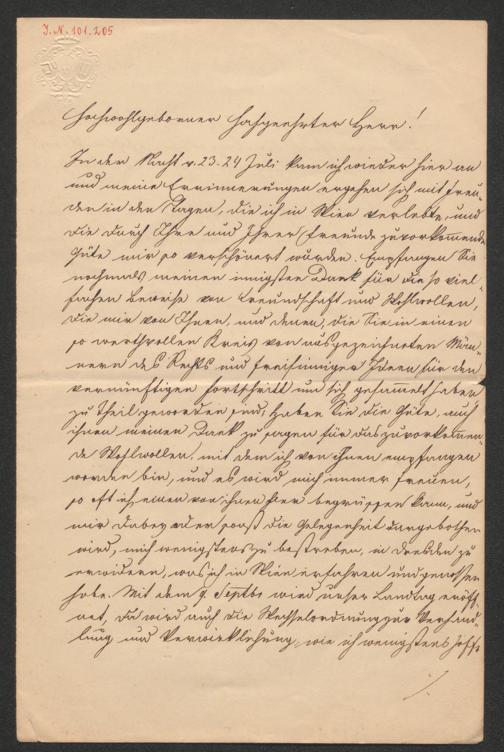 J. N. 101.205
Hochwohlgeborner Hochgeehrter Herr!
In der Nacht v. 23. 24 Juli kam ich wieder hier an
und meine Erinnerungen ergehen sich mit Freu-
den in den Tagen, die ich in Wien verlebte, und
die durch Ihre und Ihrer Freunde zuvorkommende
Güte mir so verschönert wurden. Empfangen Sie
nochmals meinen innigsten Dank für die so viel-
fachen Beweise von Freundschaft und Wohlwollen,
die mir von Ihnen, und denen, die Sie in einen
so werthvollen Kreis von ausgezeichneten Män-
nern des Rechts und freisinniger Ideen für den
vernünftigen Fortschritt um sich gesammelt haben,
zu Theil geworden sind, haben Sie die Güte, auch
ihnen meinen Dank zu sagen für das zuvorkommen-
de Wohlwollen, mit dem ich von Ihnen empfangen
worden bin, und es wird mich immer freuen,
so oft ich einen von ihnen hier begrüßen kann, und
mir dabey oder sonst die Gelegenheit dargebothen
wird, mich wenigstens zu bestreben, in Dresden zu
erwidern, was ich in Wien erfahren und genossen
habe. Mit dem 9. Septbr wird unser Landtag eröff-
net, da wird auch die Wechselordnung zur Verhand-
lung und Verwirklichung, wie ich wenigstens hoffe
./.